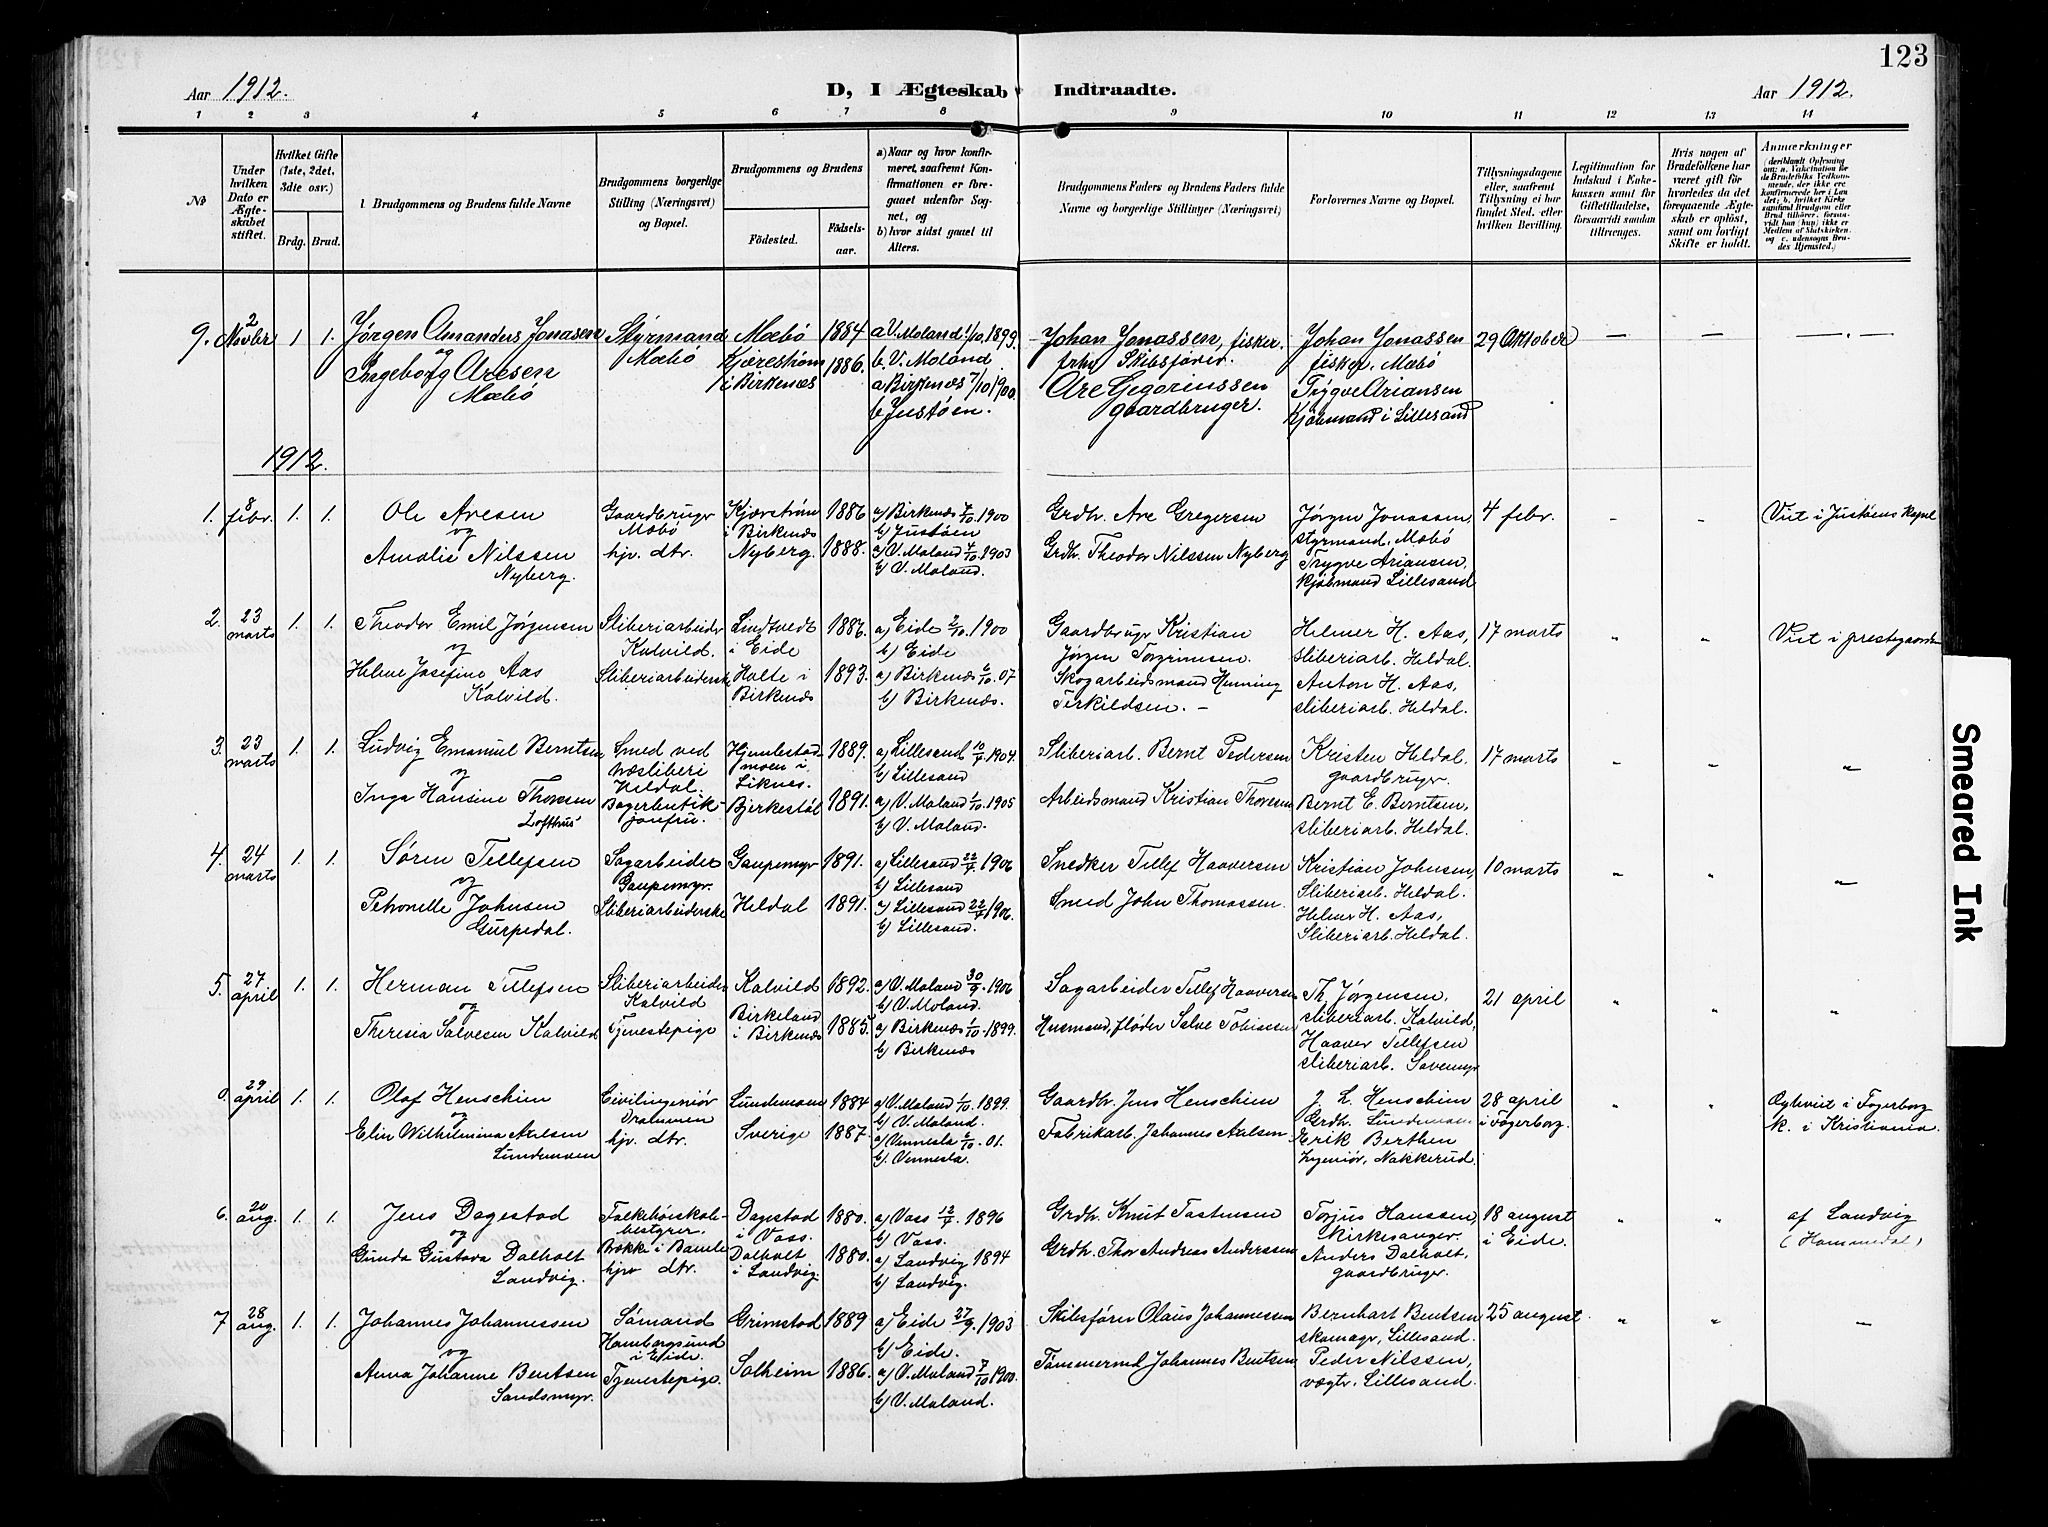 123
Aar 1912.
D, I Ægteskab Indtraadte.
Aar 1912.
1 2 3 4 5 6 7 8 9 10 11 12 13 14
No
Under hvilken Dato er Ægteskabet stiftet.
Hvilket Gifte (1ste, 2det, 3die osv.)
Brdg. Brud.
1. Brudgommens og Brudens fulde Navne
Brudgommens borgerlige Stilling (Næringsvei) og Bopæl.
Brudgommens og Brudens
Födested. Födselsaar.
a) Naar og hvor konfirmeret, saafremt Konfirmationen er foregaaet udenfor Sognet, og
b) hvor sidst gaaet til Alters.
Brudgommens Faders og Brudens Faders fulde Navne og borgerlige Stillinger (Næringsvei)
Forlovernes Navne og Bopæl.
Tillysningsdagene eller, saafremt Tillysning ei har fundet Sted, efter hvilken Bevilling.
Legitimation for Indskud i Enkekassen samt for Giftetilladelse, forsaavidt saadan tiltrænges.
Hvis nogen af Brudefolkene har været gift før hvorledes da det foregaaende Ægteskab er opløst, samt om lovligt Skifte er holdt.
Anmærkninger
9. 2 Novbr 1 1. Jørgen Amanders Jonasen Styrmand Mæbö Mæbö 1884 a V. Moland 1/10 1899. b. V. Moland Johan Jonassen, fisker. frhv Skibsfører. Johan Jonassen fisker, Mæbö 29 Oktober — — —.—
og
Ingeborg Aresen Mæbö Kjærestrøm i Birkenæs 1886. a Birkenæs 7/10 1900. b Justöen. Are Gegorinssen gaardbruger. Trygve Ariansen Kjøbmand i Lillesand
1912.
1. 8 febr. 1. 1. Ole Aresen Gaardbrugr Mæbö Kjærström i Birkenæs 1886 a) Birkenæs 7/10 1900 b) Justöen Grdbr. Are Gregersen Jørgen Jonassen, styrmand, Mæbö 4 febr. " " Viet i Justöens kapel
og
Amalie Nilssen Nyberg. hjv. dtr. Nyberg. 1888. a) V. Moland 4/10 1903 b) V. Moland. Grdbr. Theodor Nilssen Nyberg Trygve Ariansen, kjöbmand Lillesand
2. 23 marts 1. 1. Theodor Emil Jørgensen Sliberiarbeider Kalvild. Lindtvedt i Eide 1886. a) Eide 2/10 1900 b) Eide Gaardbrugr Kristian Jørgen Torgrimsen. Helmer H. Aas, sliberiarb. Heldal. 17 marts " " Viet i prestegaarden
og
Helene Josefine Aas Kalvild. Sliberiarbeiderske Holte i Birkenæs 1893. a) Birkenæs 6/10 07 b) Birkenæs. Skogarbeidsmand Henning Terkildsen. – Anton H. Aas, sliberiarb. Heldal.
3. 23 marts 1. 1. Ludvig Emanuel Berntsen Smed ved træsliberi Heldal. Hjemlestadmoen i Liknes. 1889. a) Lillesand 10/4 1904. b) Lillesand Sliberiarb. Bernt Pedersen Kristen Heldal, gaardbruger. 17 marts " " "
og
Inga Hansine Thoresen Lofthus Bagerbutikjomfru. Bjerkestöl 1891. a) V. Moland 1/10 1905 b) V. Moland. Arbeidsmand Kristian Thoresen Bernt E. Berntsen, sliberiarb. Heldal.
4. 24 marts 1. 1. Søren Tellefsen Sagarbeider Gaupemyr. Gaupemyr 1891. a) Lillesand 22/4 1906 b) Lillesand Snedker Tellef Haaversen Kristian Johnsen, Sliberiarb. Heldal. 10 marts " " "
og
Petronelle Johnsen Gurpedal. Sliberiarbeiderske Heldal 1891. a) Lillesand 22/4 1906. b) Lillesand. Smed John Thomassen. Helmer H. Aas, Sliberiarb. Heldal.
5. 27 april 1. 1. Herman Tellefsen Sliberiarbeider Kalvild Kalvild 1892. a) V. Moland 30/9. 1906 b) V. Moland Sagarbeider Tellef Haaversen Th. Jørgensen, sliberiarb. Kalvild, 21 april " " "
og
Theresia Salvesen Kalvild Tjenestepige Birkeland i Birkenæs 1885. a) Birkenæs 1/10. 1899. b) Birkenæs Husmand, fløder Salve Tobiassen Haaver Tellefsen sliberiarb.
0. 29 april 1. 1. Olaf Henschien Civilingeniör Drammen Lundemoen 1884 a) V. Moland 1/10. 1899. b) V. Moland. Gaardbr. Jens Henschien J. L. Henschien Grdbr. Lundemoen 28 april i Fagerborg. " " Ogkviet i Fagerborg k. i Kristiania.
og
Elin Wilhelmina Axelsen Lundemoen hjv. dtr. Sverige 1887. a) Vennesla 6/10. 01. b) Vennesla. Fabrikarb. Johannes Axelsen. Erik Berthen Ingeniör, Nakkerud.
6. 20 aug. 1. 1. Jens Dagestad Folkehöiskolebestyrer. Bokke i Bamle Dagestad i Voss. 1880. a) Voss 12/7. 1896 b) Voss. Grdbr. Knut Torstensen Torjus Hanssen, Kirkesanger. 18 august i Eide. " " af Landvig (Hommedal)
og
Gunda Gustava Dalholt Landvig. hjv dtr. Dalholt i Landvig. 1880. a) Landvig 1894 b) Landvig. Grdbr. Thor Andreas Anderssen Anders Dalholt, gaardbruger.
7 28 aug. 1. 1. Johannes Johannessen Sömand Hamborgsund i Eide. Grimstad 1889 a) Eide 27/9. 1903 b) Eide. Skibsfører Olaus Johannessen Bernhart Bentsen skomager, Lillesand. 25 august " " —
og
Anna Johanne Bentsen Sandsmyr. Tjenestepige. Solheim 1886. a) V. Moland 7/10 1900. b) V. Moland. Tömmermd Johannes Bentsen Peder Nilssen, vægter, Lillesand.
Smeared Ink